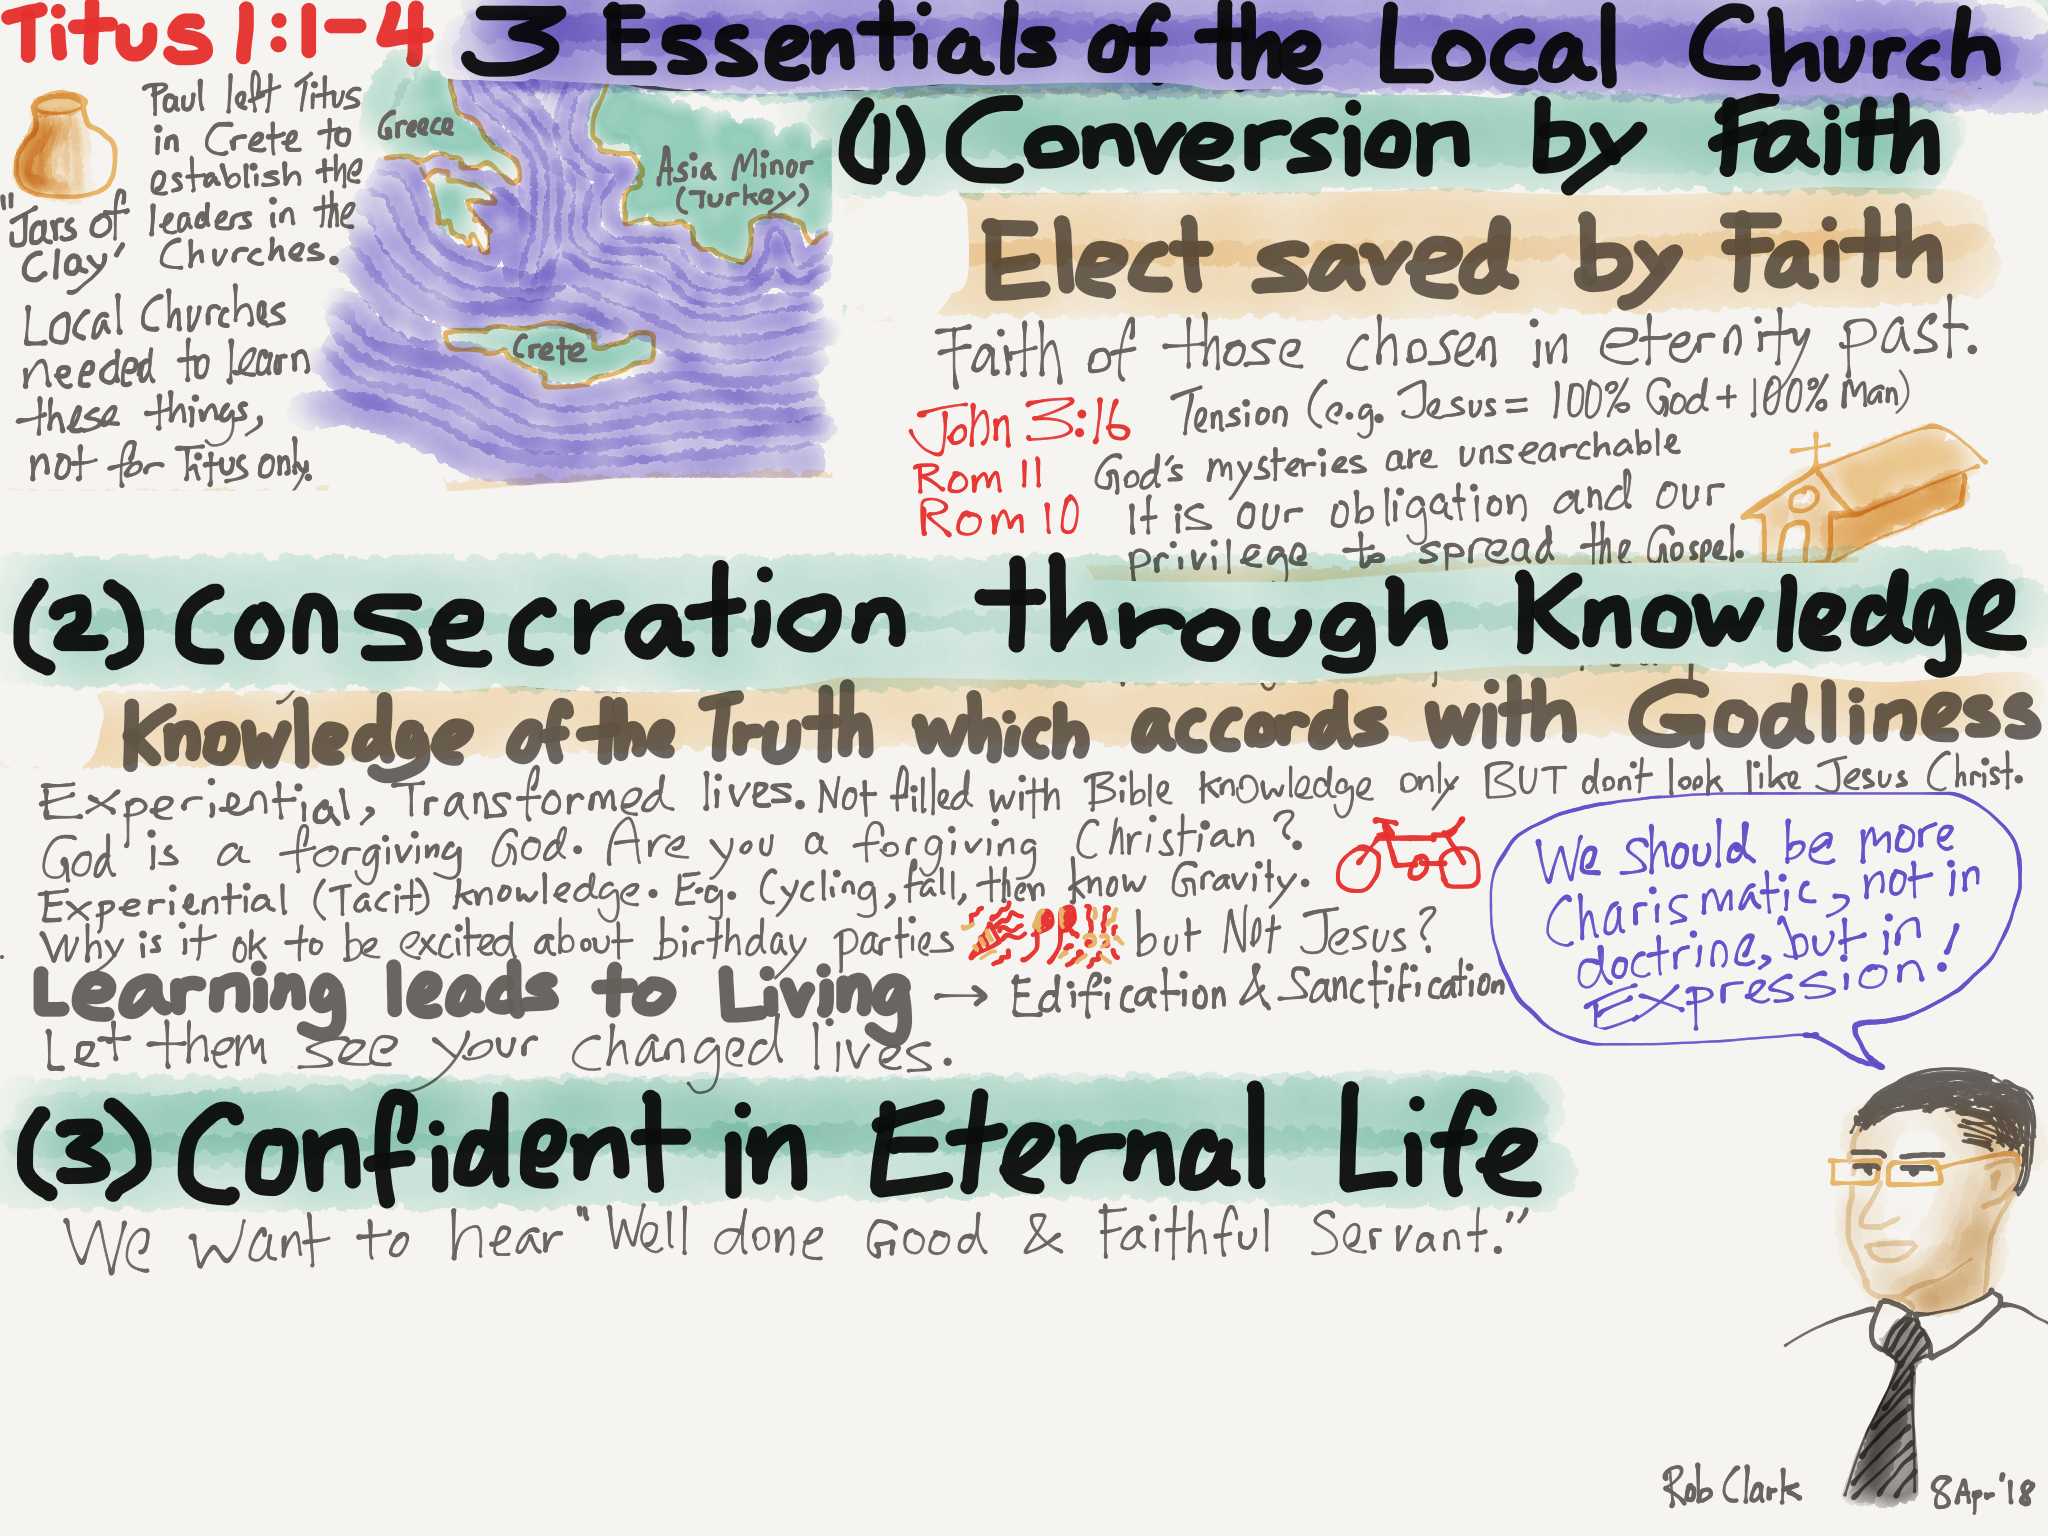 Titus 1:1-4
3 Essentials of the Local Church
Paul left Titus
in Crete to
establish the
leaders in the
Churches.
"Jars of
Clay"
Local Churches
needed to learn
these things,
not for Titus only.
Greece
Asia Minor
(Turkey)
Crete
(1) Conversion by Faith
Elect saved by Faith
Faith of those chosen in eternity past.
John 3:16 Tension (e.g. Jesus = 100% God + 100% Man)
Rom 11 God's mysteries are unsearchable
Rom 10 It is our obligation and our
privilege to spread the Gospel.
(2) Consecration through Knowledge
Knowledge of the Truth which accords with Godliness
Experiential, Transformed lives. Not filled with Bible knowledge only BUT don't look like Jesus Christ.
God is a forgiving God. Are you a forgiving Christian?
Experiential (Tacit) knowledge. E.g. Cycling, fall, then know Gravity.
Why is it ok to be excited about birthday parties but Not Jesus?
Learning leads to Living → Edification & Sanctification
Let them see your changed lives.
We should be more
Charismatic, not in
doctrine, but in
Expression!
(3) Confident in Eternal Life
We want to hear "Well done Good & Faithful Servant."
Rob Clark 8 Apr '18